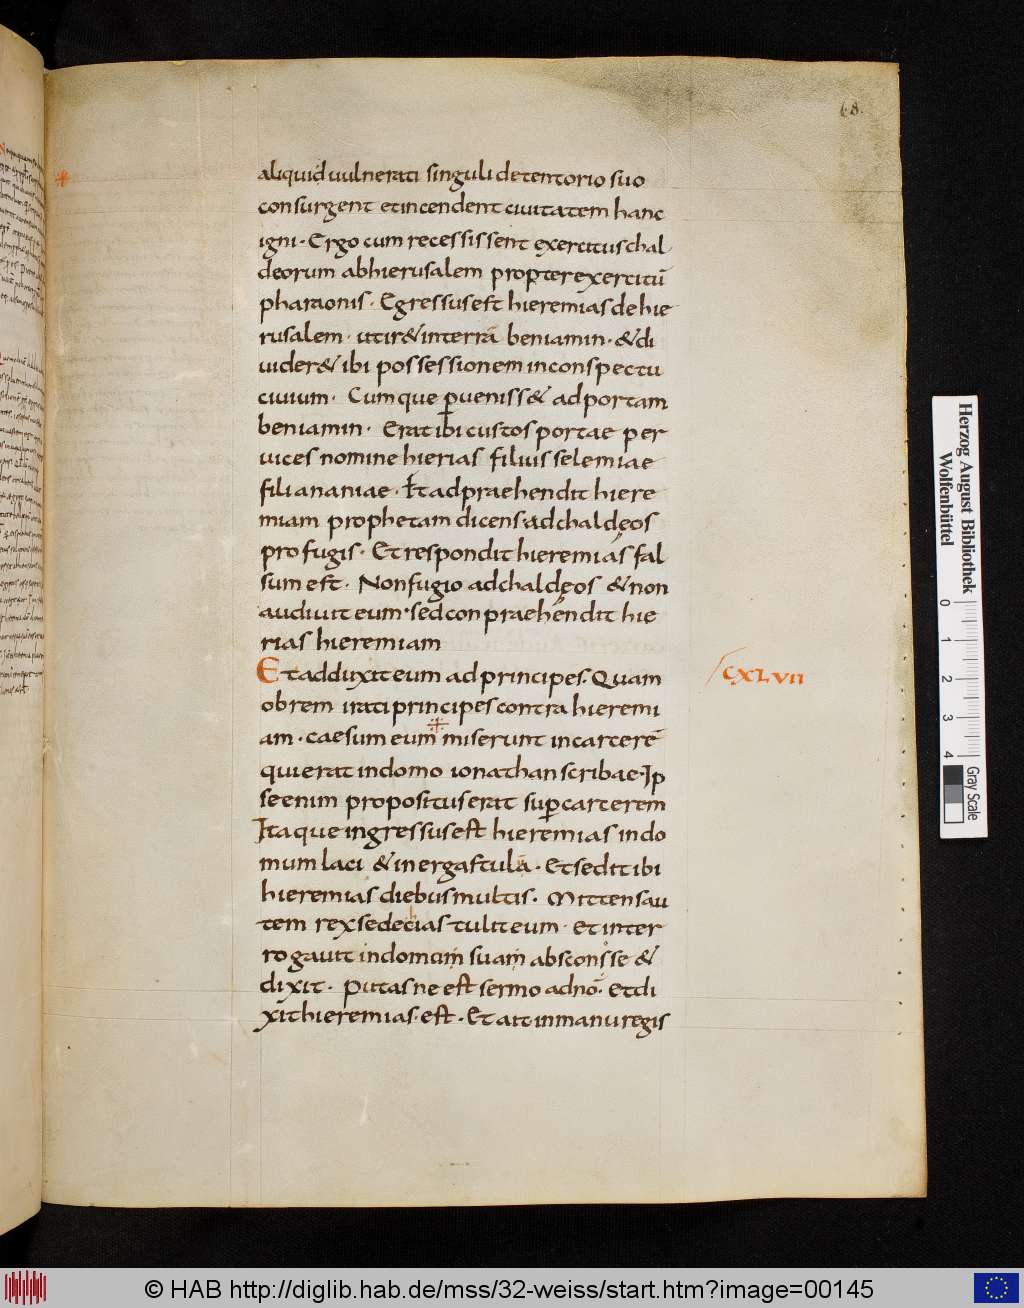 68.
aliquid uulnerati singuli detentorio suo
consurgent etincendent ciuitatem hanc
igni· Ergo cum recessissent exercituschal
deorum abhierusalem propterexercitū
pharaonis· Egressusest hieremias dehie
rusalem· utir&interrā beniamin· &di
uider& ibi possessionem inconspectu
ciuium· Cumque ꝑueniss& adportam
beniamin· Erat ibi custos portae per
uices nomine hierias filius selemiae
filiananiae· Et adpraehendit hiere
miam prophetam dicens adchaldęos
profugis· Et respondit hieremias fal
sum est· Nonfugio adchaldęos &non
audiuit eum· sed conpraehendit hie
rias hieremiam
Et adduxit eum ad principes. Quam
CXLVII
obrem irati principes contra hieremi
am· caesum eum miserunt incarcerē
qui erat indomo ionathan scribae· Ip
se enim propositus erat suꝑ carcerem
Itaque ingressus est hieremias indo
mum laci & inergastulā· Et sedit ibi
hieremias diebus multis· Mittens au
tem rex sedecias tulit eum· et inter
rogauit indomum suam absconsse &
dixit· putasne est sermo adnō· etdi
xit hieremias· est· Et ait inmanu regis
Herzog August Bibliothek
Wolfenbüttel
0 1 2 3 4
Gray Scale
© HAB http://diglib.hab.de/mss/32-weiss/start.htm?image=00145